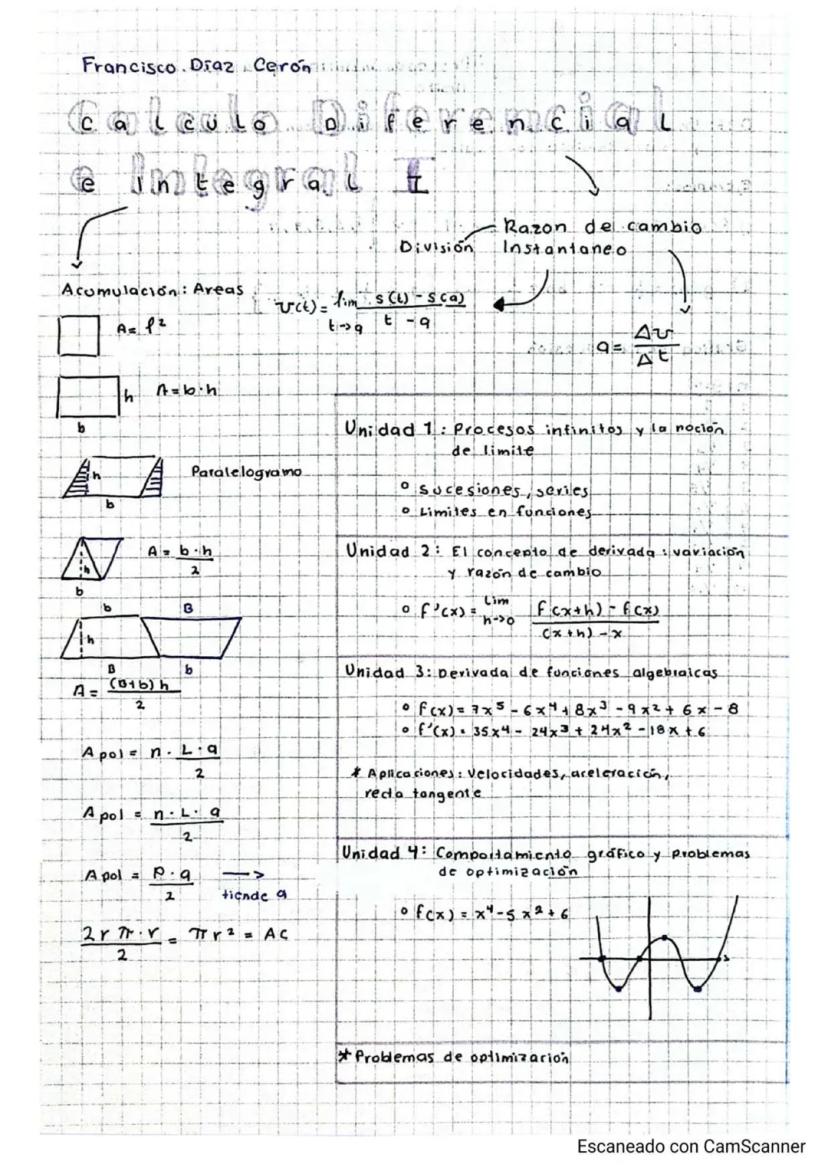 Francisco Díaz Cerón
Calculo Diferencial
e Integral I
División
Razon del cambio
Instantaneo
Acumulación: Areas
A= l²
h
A=b·h
b
h
Paralelogramo
b
h
A = b·h / 2
b
b
B
h
B
b
A = (B+b)h / 2
A pol = n · L · a / 2
A pol = n · L · a / 2
A pol = P · a / 2 —> tiende a
2rπ·r / 2 = πr² = Ac
v(t) = lim t->a s(t) - s(a) / t - a
a = Δv / Δt
Unidad 1: Procesos infinitos y la noción
de limite
° Sucesiones, series
° Limites en funciones
Unidad 2: El concepto de derivada: variación
y razón de cambio
° f'(x) = Lim h->0 f(x+h) - f(x) / (x+h) - x
Unidad 3: Derivada de funciones algebraicas
° f(x) = 7x⁵ - 6x⁴ + 8x³ - 9x² + 6x - 8
° f'(x) = 35x⁴ - 24x³ + 24x² - 18x + 6
* Aplicaciones: Velocidades, aceleración,
recta tangente
Unidad 4: Comportamiento gráfico y problemas
de optimización
° f(x) = x⁴ - 5x² + 6
* Problemas de optimización
Escaneado con CamScanner